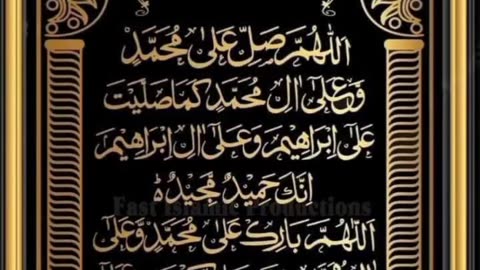 اَللّٰهُمَّ صَلِّ عَلٰی مُحَمَّدٍ
وَّعَلٰٓی اٰلِ مُحَمَّدٍ کَمَا صَلَّیْتَ
عَلٰٓی اِبْرَاهِیْمَ وَعَلٰٓی اٰلِ اِبْرَاهِیْمَ
اِنَّکَ حَمِیْدٌ مَّجِیْدٌ ط
Fast Islamic Productions
اَللّٰهُمَّ بَارِکْ عَلٰی مُحَمَّدٍ وَّعَلٰٓی